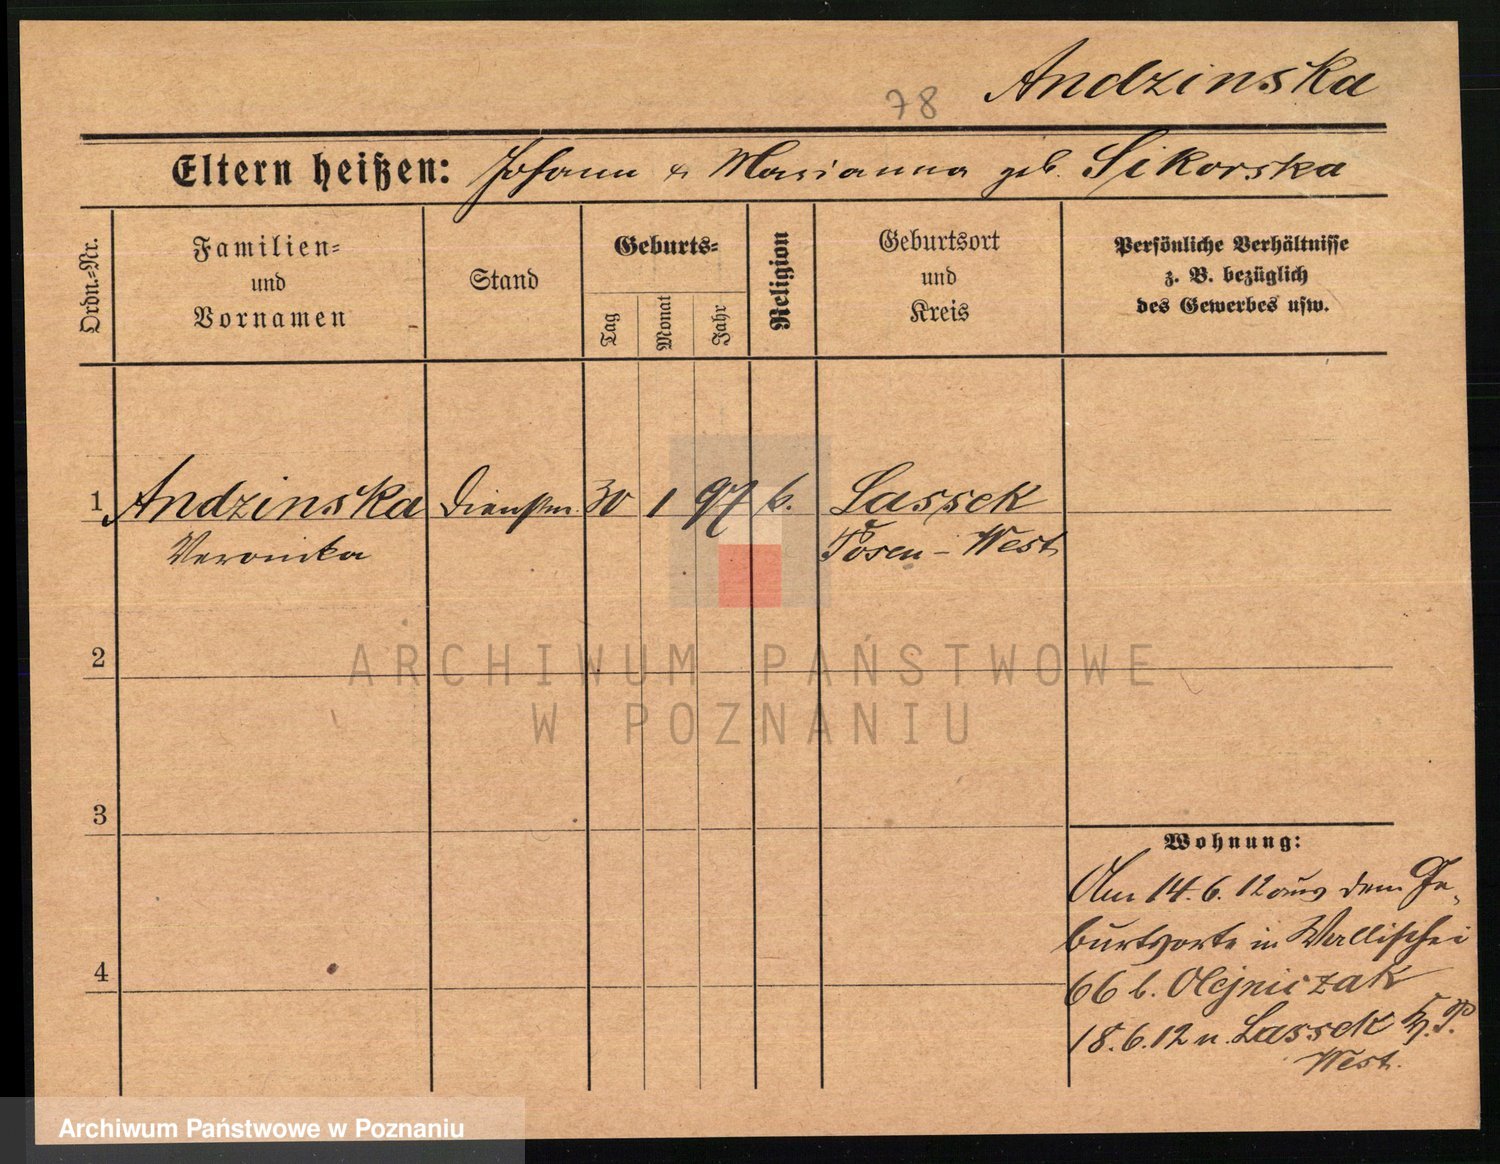 Andzinska
78
Eltern heißen: Johann & Marianna geb. Sikorska
Ordn.-Nr.
Familien-
und
Vornamen
Stand
Geburts-
Tag
Monat
Jahr
Religion
Geburtsort
und
Kreis
Persönliche Verhältnisse
z. B. bezüglich
des Gewerbes usw.
1 Andzinska Dienstm. 30 1 97 k. Lassek
Veronika Posen - West
2
ARCHIWUM PAŃSTWOWE
W POZNANIU
3
Wohnung:
Am 14.6.12 aus dem Ge-
burtsorte in Wallischei
66 b. Olejniczak
4
18.6.12 n. Lassek Kr. P.
West.
Archiwum Państwowe w Poznaniu